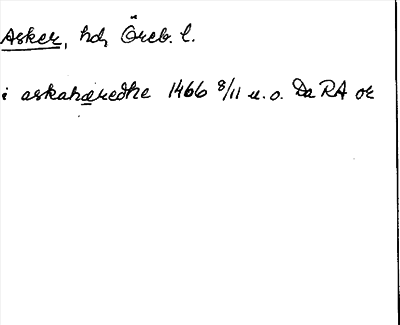 Asker, hd, Öreb. l.
i askahæredhe 1466 8/11 u. o. Da RA or